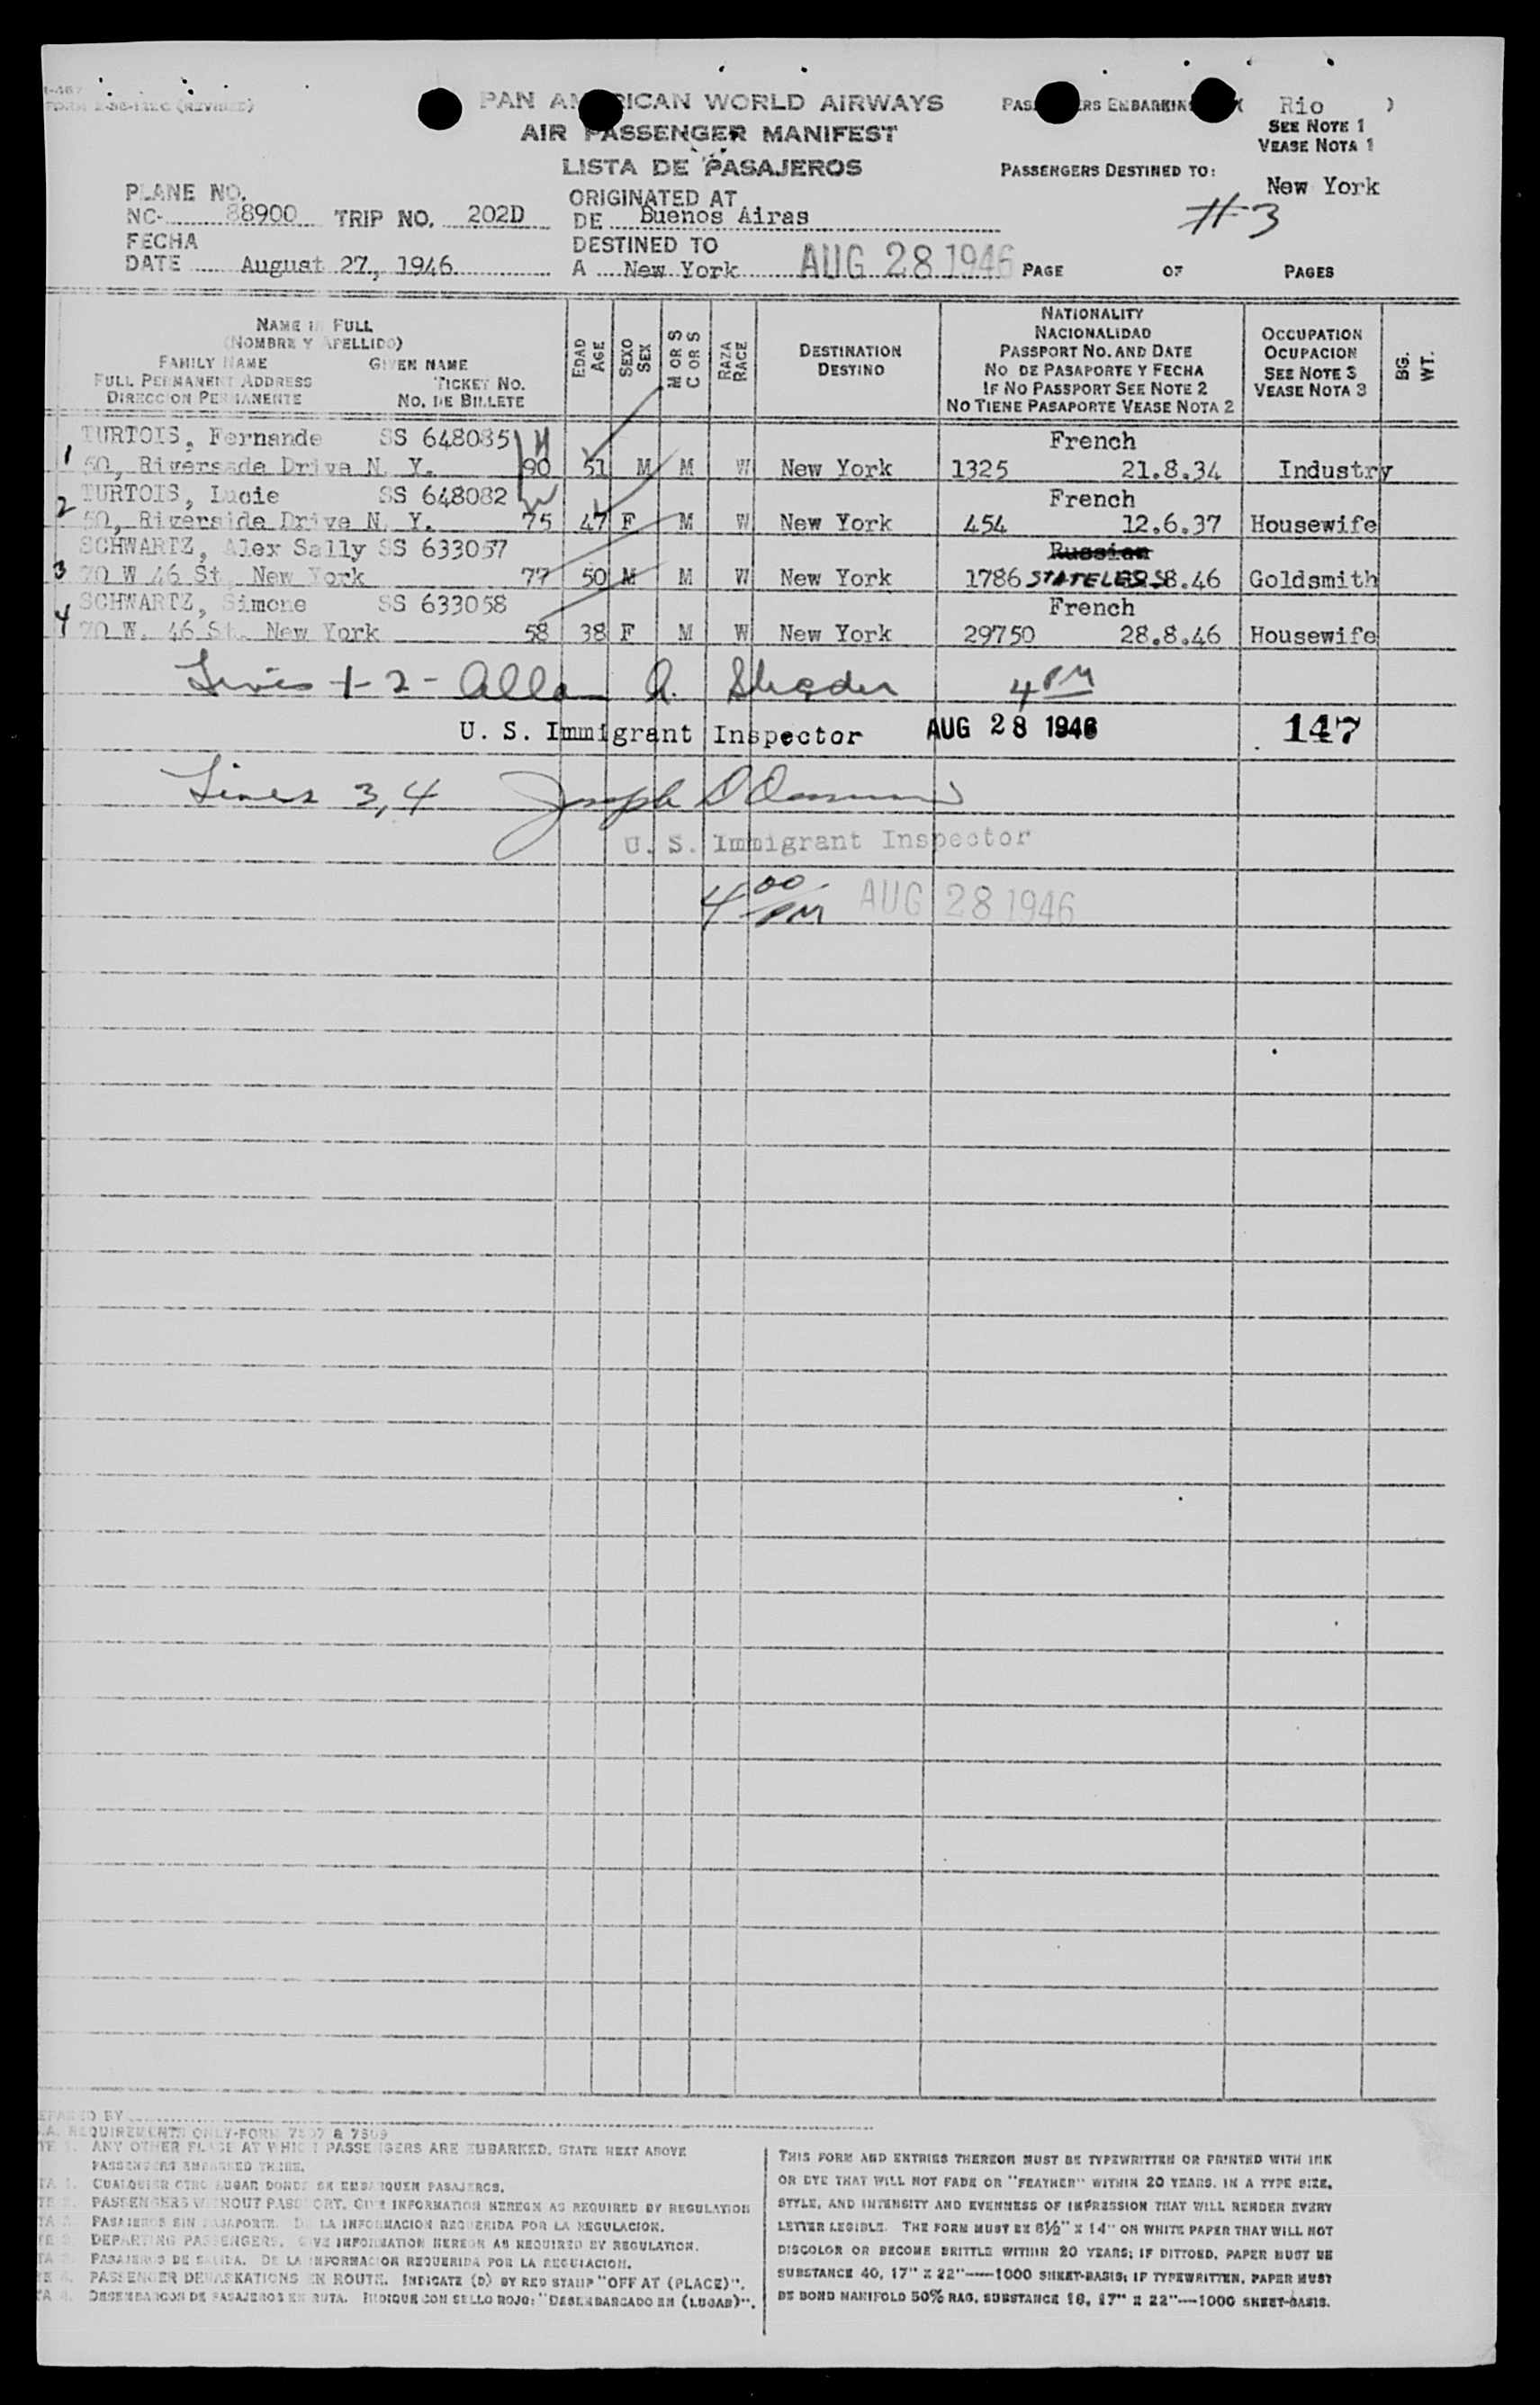 PAN AMERICAN WORLD AIRWAYS
AIR PASSENGER MANIFEST
LISTA DE PASAJEROS
PASSENGERS EMBARKING ( Rio )
SEE NOTE 1
VEASE NOTA 1
PASSENGERS DESTINED TO:
New York
#3
PLANE NO.
NC- 88900 TRIP NO. 202D
FECHA
DATE August 27, 1946
ORIGINATED AT
DE Buenos Airas
DESTINED TO
A New York AUG 28 1946 PAGE OF PAGES
NAME IN FULL
(NOMBRE Y APELLIDO)
FAMILY NAME GIVEN NAME
FULL PERMANENT ADDRESS TICKET NO.
DIRECCION PERMANENTE NO. DE BILLETE
EDAD AGE
SEXO SEX
M OR S
C OR S
RAZA RACE
DESTINATION
DESTINO
NATIONALITY
NACIONALIDAD
PASSPORT NO. AND DATE
NO DE PASAPORTE Y FECHA
IF NO PASSPORT SEE NOTE 2
NO TIENE PASAPORTE VEASE NOTA 2
OCCUPATION
OCUPACION
SEE NOTE 3
VEASE NOTA 3
BG. WT.
TURTOIS, Fernande SS 648085 French
1 50, Riversade Drive N. Y. 90 51 M M W New York 1325 21.8.34 Industry
TURTOIS, Lucie SS 648082 French
2 50, Riverside Drive N. Y. 75 47 F M W New York 454 12.6.37 Housewife
SCHWARTZ, Alex Sally SS 633057 Russian
3 70 W 46 St. New York 77 50 M M W New York 1786 STATELESS 8.46 Goldsmith
SCHWARTZ, Simone SS 633058 French
4 70 W. 46 St. New York 58 38 F M W New York 29750 28.8.46 Housewife
Lines 1-2- Allan A. 4 PM
U. S. Immigrant Inspector AUG 28 1946 147
Lines 3,4 Joseph
U. S. Immigrant Inspector
4 00 PM AUG 28 1946
REQUIREMENTS ONLY-FORM 7507 & 7509
ANY OTHER PLACE AT WHICH PASSENGERS ARE EMBARKED. STATE NEXT ABOVE
PASSENGERS EMBARKED THERE.
CUALQUIER OTRO LUGAR DONDE SE EMBARQUEN PASAJEROS.
PASSENGERS WITHOUT PASSPORT. GIVE INFORMATION HEREON AS REQUIRED BY REGULATION
PASAJEROS SIN PASAPORTE. DE LA INFORMACION REQUERIDA POR LA REGULACION.
DEPARTING PASSENGERS. GIVE INFORMATION HEREON AS REQUIRED BY REGULATION.
PASAJEROS DE SALIDA. DE LA INFORMACION REQUERIDA POR LA REGULACION.
PASSENGER DEBARKATIONS EN ROUTE. INDICATE (D) BY RED STAMP "OFF AT (PLACE)".
DESEMBARCON DE PASAJEROS EN RUTA. INDIQUE CON SELLO ROJO: "DESEMBARCADO EN (LUGAR)".
THIS FORM AND ENTRIES THEREON MUST BE TYPEWRITTEN OR PRINTED WITH INK
OR DYE THAT WILL NOT FADE OR "FEATHER" WITHIN 20 YEARS. IN A TYPE SIZE,
STYLE, AND INTENSITY AND EVENNESS OF IMPRESSION THAT WILL RENDER EVERY
LETTER LEGIBLE. THE FORM MUST BE 8½" X 14" ON WHITE PAPER THAT WILL NOT
DISCOLOR OR BECOME BRITTLE WITHIN 20 YEARS; IF DITTOED, PAPER MUST BE
SUBSTANCE 40, 17" X 22"—1000 SHEET-BASIS; IF TYPEWRITTEN, PAPER MUST
BE BOND MANIFOLD 50% RAG, SUBSTANCE 16, 17" X 22"—1000 SHEET-BASIS.